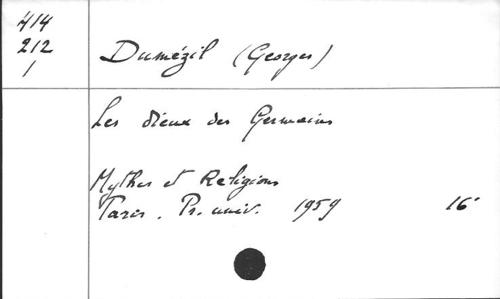 414
212
1
Dumézil (Georges)
Les dieux des Germains
Mythes et Religions
Paris. Pr. univ. 1959 16°